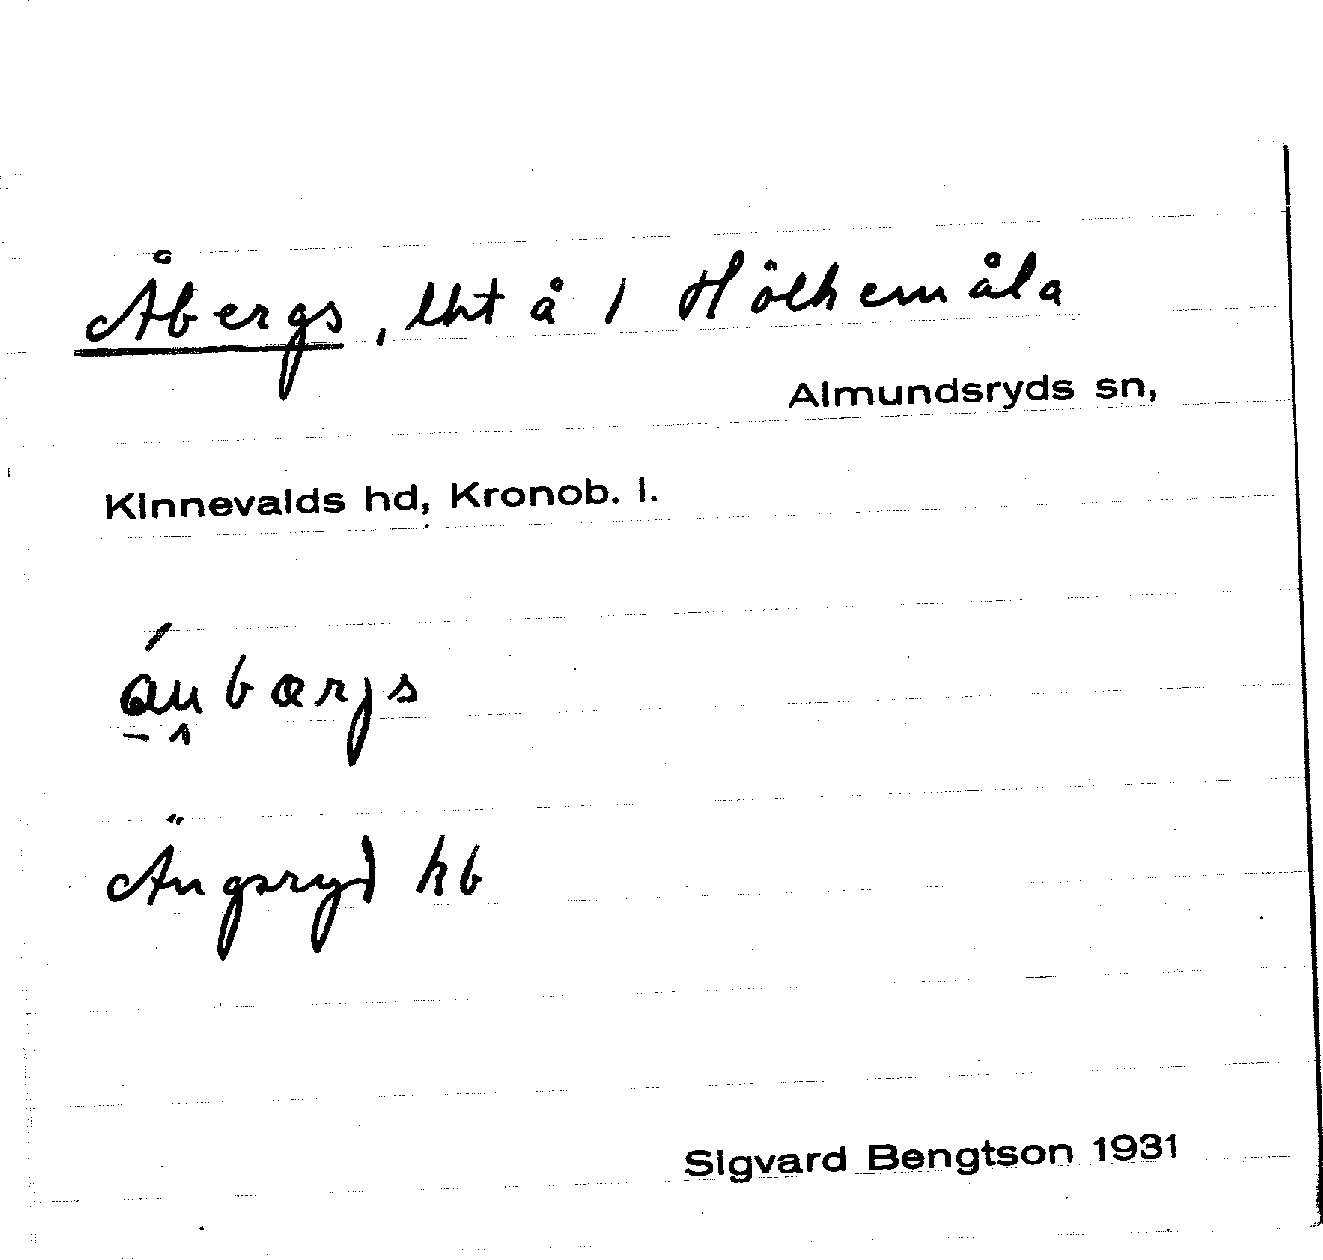 Åbergs, lht å 1 Hölhemåla
Almundsryds sn,
Kinnevalds hd, Kronob. l.
áu̯bærjs
Ängsryd hb
Sigvard Bengtson 1931